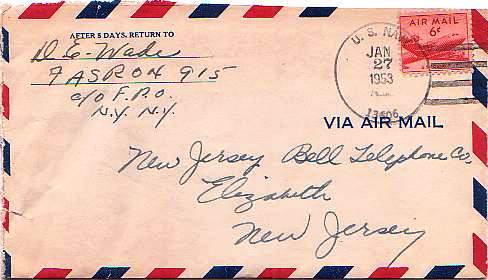 AFTER 5 DAYS, RETURN TO
D. E. Wade
FASRON 915
c/o F.P.O.
N.Y. N.Y.
U. S. NAVY
JAN
27
1953
13606
AIR MAIL
6¢
VIA AIR MAIL
New Jersey Bell Telephone Co.
Elizabeth
New Jersey